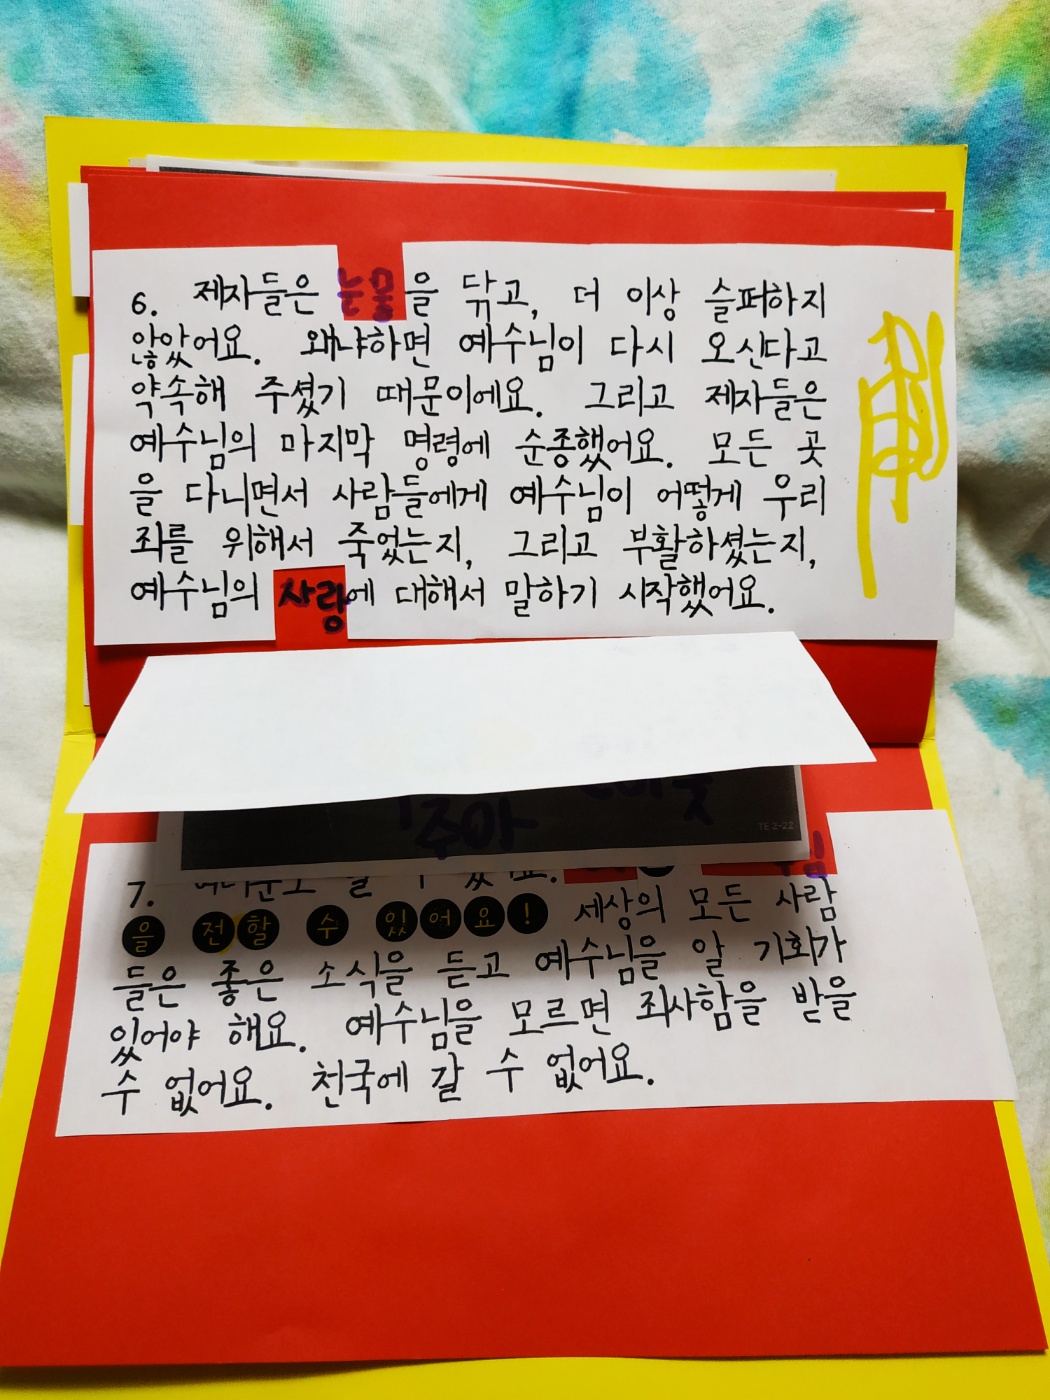 6. 제자들은 눈물을 닦고, 더 이상 슬퍼하지
않았어요. 왜냐하면 예수님이 다시 오신다고
약속해 주셨기 때문이에요. 그리고 제자들은
예수님의 마지막 명령에 순종했어요. 모든 곳
을 다니면서 사람들에게 예수님이 어떻게 우리
죄를 위해서 죽었는지, 그리고 부활하셨는지,
예수님의 사랑에 대해서 말하기 시작했어요.
주아
TE 2-22
7.
을 전할 수 있어요! 세상의 모든 사람
들은 좋은 소식을 듣고 예수님을 알 기회가
있어야 해요. 예수님을 모르면 죄사함을 받을
수 없어요. 천국에 갈 수 없어요.